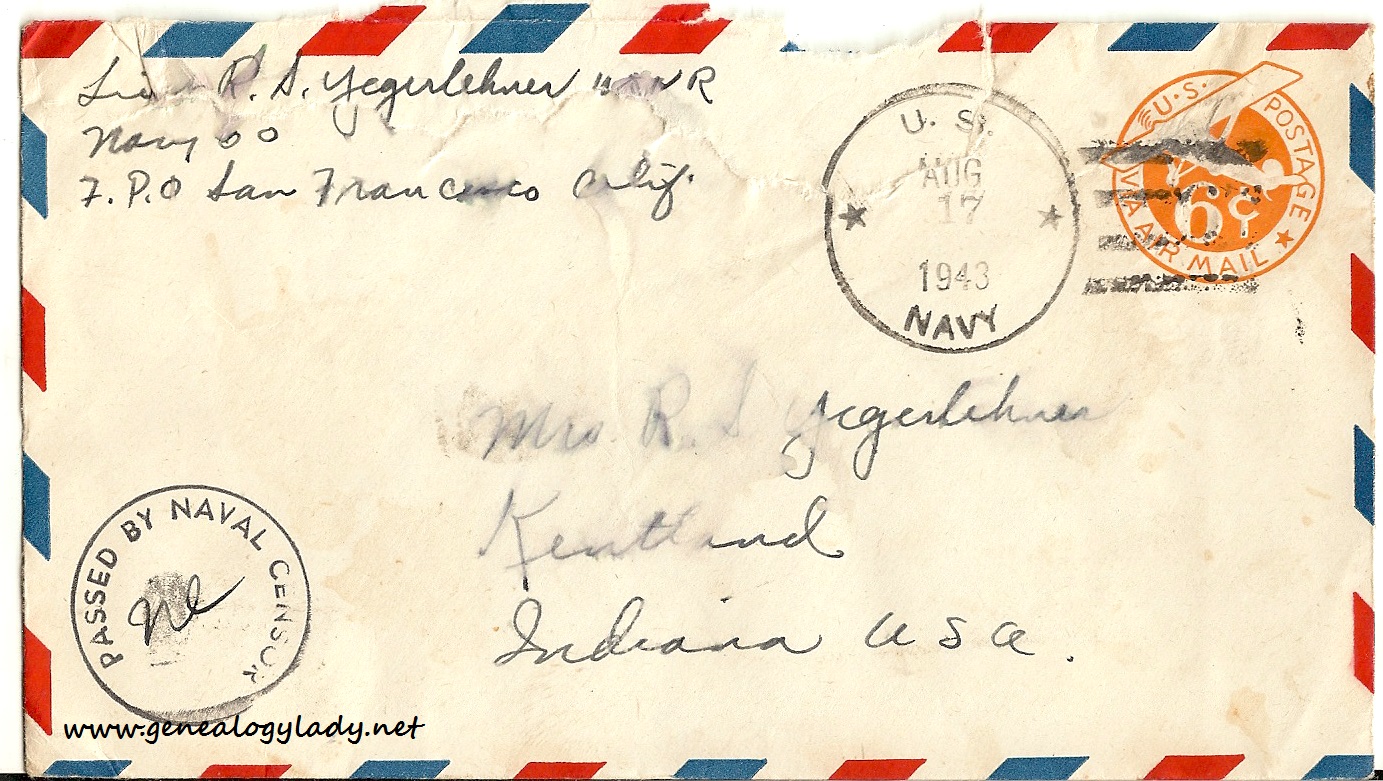 Lieut R. S. Yegerlehner USNR
Navy 60
F.P.O San Francisco Calif.
U. S.
AUG
17
1943
NAVY
U.S. POSTAGE
VIA AIR MAIL
6¢
Mrs. R. S. Yegerlehner
Kentland
Indiana U S A.
PASSED BY NAVAL CENSOR
www.genealogylady.net